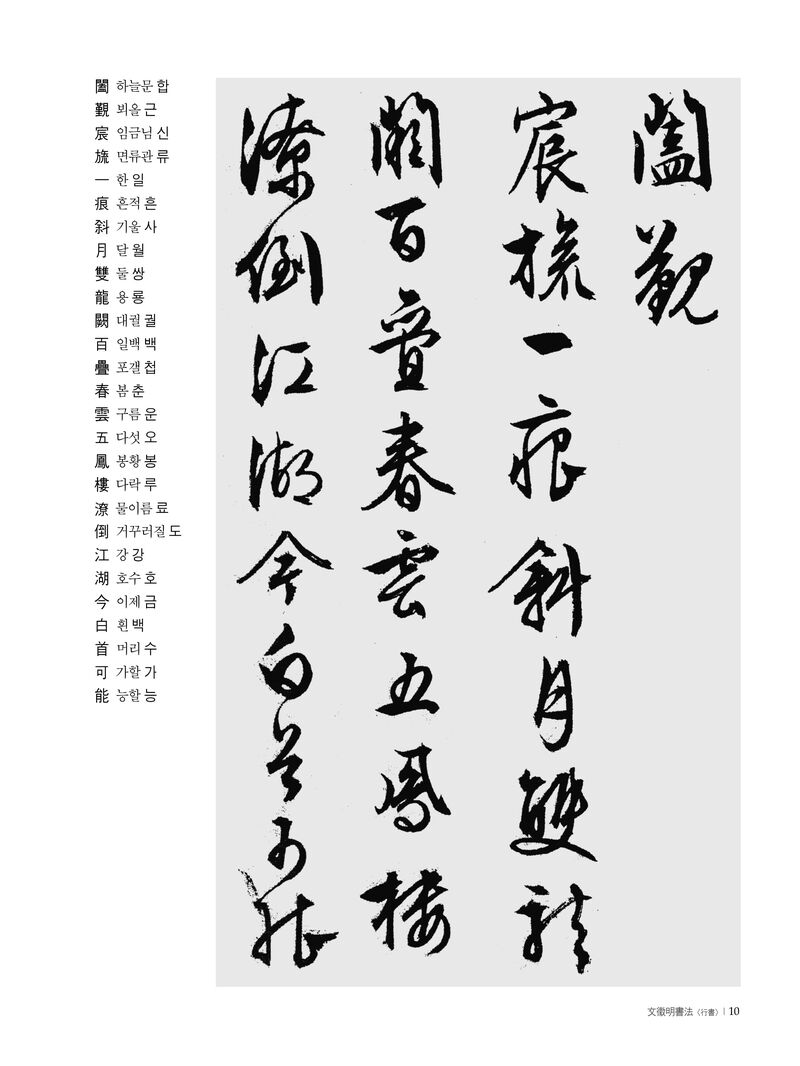 闔 하늘문 합
覲 뵈올 근
宸 임금님 신
旒 면류관 류
一 한 일
痕 흔적 흔
斜 기울 사
月 달 월
雙 둘 쌍
龍 용 룡
闕 대궐 궐
百 일백 백
疊 포갤 첩
春 봄 춘
雲 구름 운
五 다섯 오
鳳 봉황 봉
樓 다락 루
潦 물이름 료
倒 거꾸러질 도
江 강 강
湖 호수 호
今 이제 금
白 흰 백
首 머리 수
可 가할 가
能 능할 능
闔覲
宸旒一痕斜月雙龍
闕百疊春雲五鳳樓
潦倒江湖今白首可能
文徵明書法〈行書〉 | 10